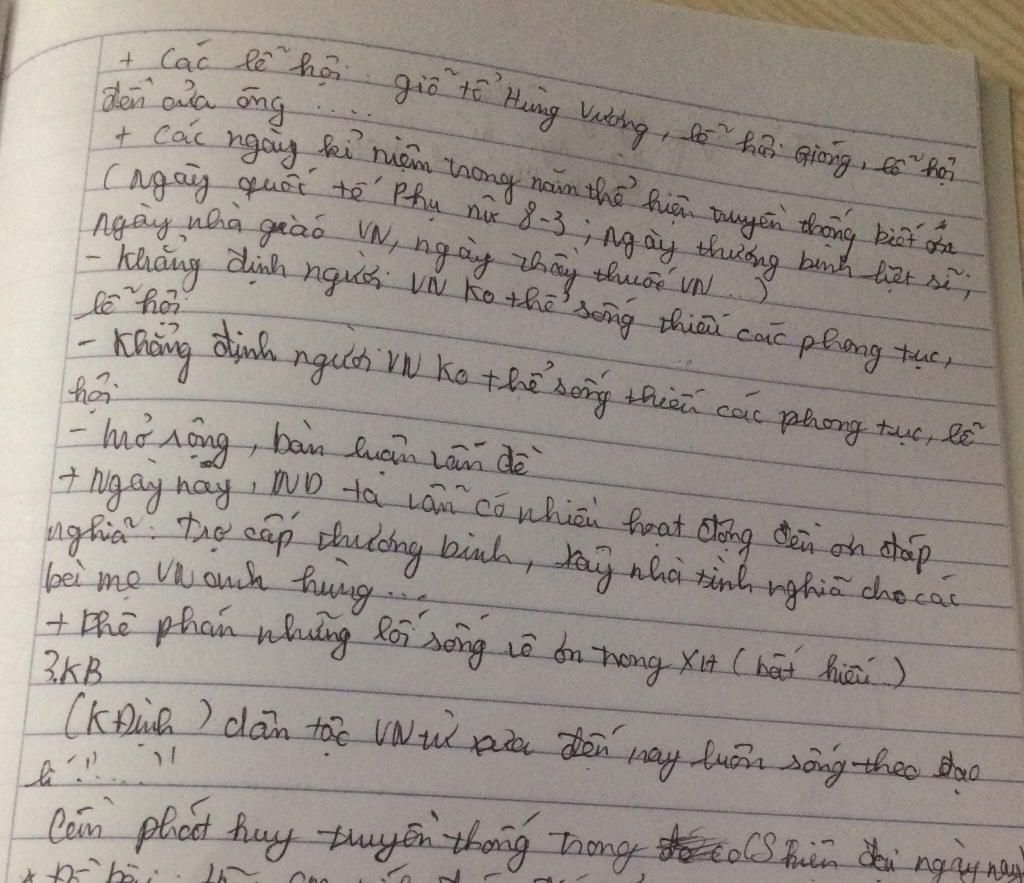 + Các lễ hội: giỗ tổ Hùng Vương, lễ hội Gióng, lễ hội
đền cửa ông ....
+ Các ngày kỉ niệm trong năm thể hiện truyền thống biết ơn
(Ngày quốc tế Phụ nữ 8-3; Ngày thương binh liệt sĩ;
ngày nhà giáo VN, ngày thầy thuốc VN ...)
- Khẳng định người VN Ko thể sống thiếu các phong tục,
lễ hội
- Khẳng định người VN Ko thể sống thiếu các phong tục, lễ
hội
- Mở rộng, bàn luận vấn đề
+ Ngày nay, ND ta vẫn có nhiều hoạt động đền ơn đáp
nghĩa: Trợ cấp thương binh, xây nhà tình nghĩa cho các
bà mẹ VN anh hùng ...
+ Phê phán những lối sống vô ơn trong XH (bất hiếu..)
3.KB
(KĐịnh) dân tộc VN từ xưa đến nay luôn sống theo đạo
lí "....."
Cần phát huy truyền thống trong CS hiện đại ngày nay
* Đề bài: